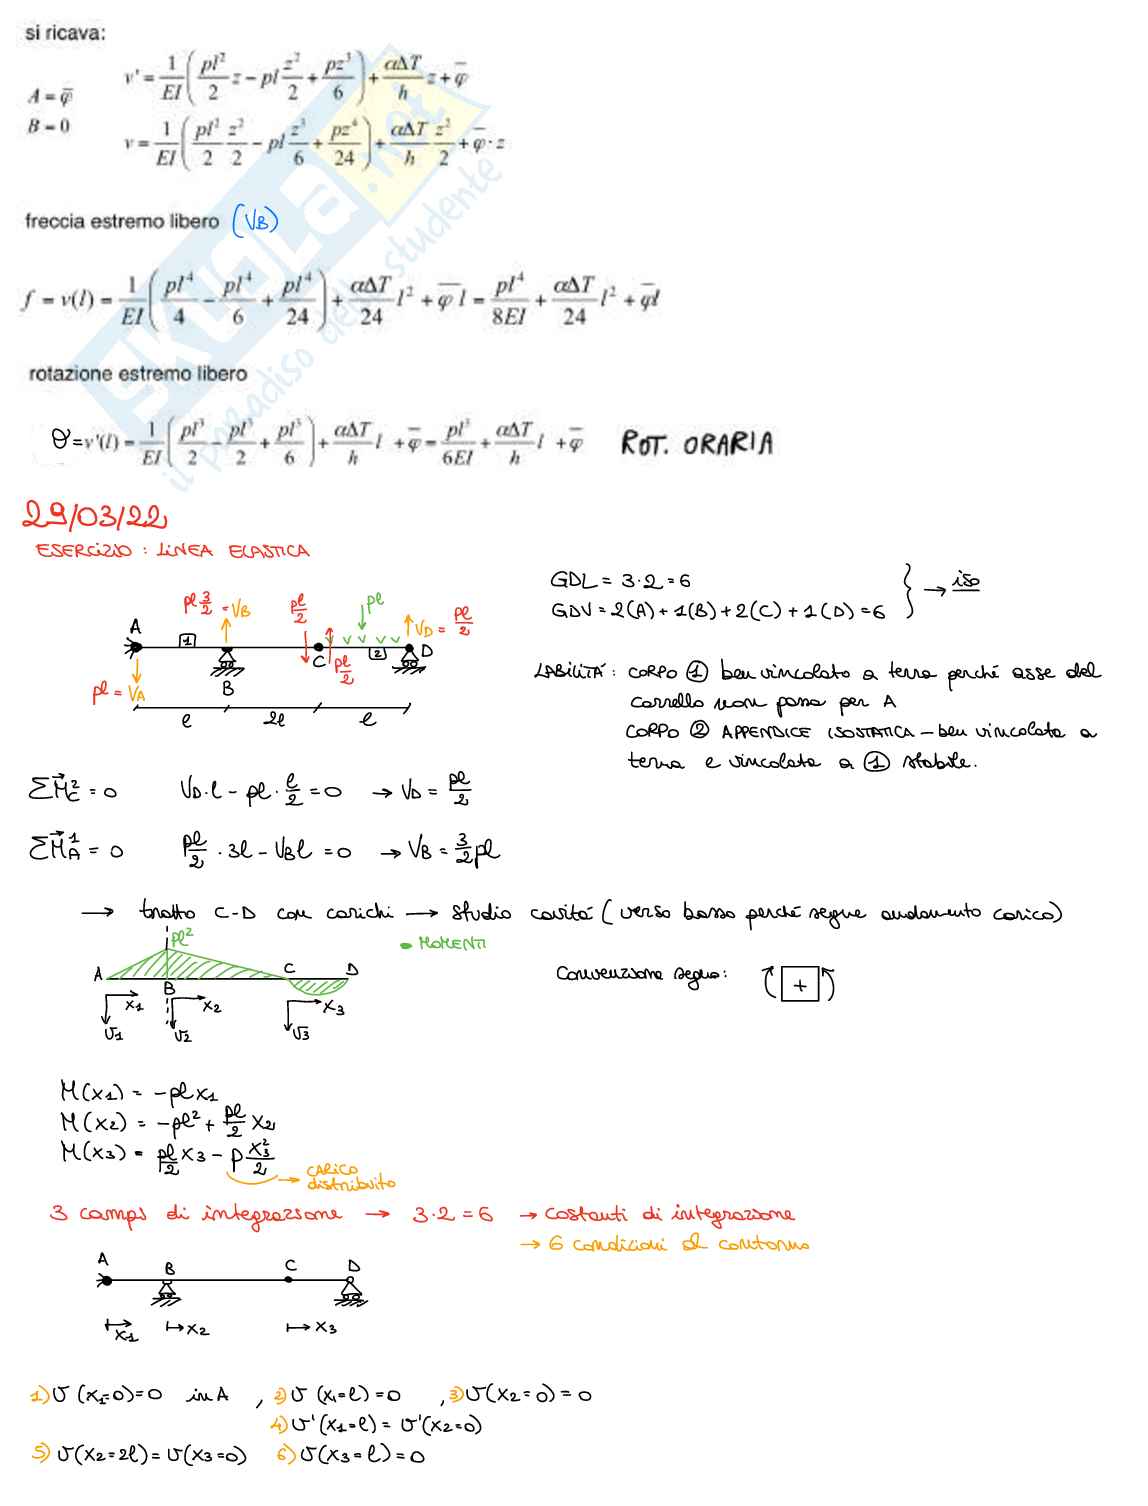 si ricava:
A = φ̄
B = 0
v' = 1/EI (pl²/2 z − pl z²/2 + pz³/6) + αΔT/h z + φ̄
v = 1/EI (pl²/2 z²/2 − pl z³/6 + pz⁴/24) + αΔT/h z²/2 + φ̄ · z
SKUOLA.net
il paradiso dello studente
freccia estremo libero (VB)
f = v(l) = 1/EI (pl⁴/4 − pl⁴/6 + pl⁴/24) + αΔT/24 l² + φ̄ l = pl⁴/8EI + αΔT/24 l² + φ̄l
rotazione estremo libero
θ = v'(l) = 1/EI (pl³/2 − pl³/2 + pl³/6) + αΔT/h l + φ̄ = pl³/6EI + αΔT/h l + φ̄ ROT. ORARIA
29/03/22
ESERCIZIO : LINEA ELASTICA
GDL = 3·2 = 6
GDV = 2(A) + 1(B) + 2(C) + 1(D) = 6
→ iso
pl 3/2 = VB
pl/2
pl
VD = pl/2
A
1
C
2
D
pl/2
pl = VA
B
l 2l l
LABILITÁ: CORPO ① ben vincolato a terra perché asse del
carrello non passa per A
CORPO ② APPENDICE ISOSTATICA – ben vincolata a
terra e vincolata a ① stabile.
ΣM²C = 0 VD·l − pl · l/2 = 0 → VD = pl/2
ΣM¹A = 0 pl/2 · 3l − VBl = 0 → VB = 3/2 pl
→ tratto C-D con carichi → studio cavità (verso basso perché segue andamento carico)
• MOMENTI
pl²
A B C D
x1 x2 x3
v1 v2 v3
Convenzione segno: +
M(x1) = −plx1
M(x2) = −pl² + pl/2 x2
M(x3) = pl/2 x3 − p x3²/2
→ CARICO
distribuito
3 campi di integrazione → 3·2 = 6 → costanti di integrazione
→ 6 condizioni al contorno
A B C D
x1 x2 x3
1) v(x1=0)=0 in A , 2) v(x1=l)=0 , 3) v(x2=0)=0
4) v'(x1=l) = v'(x2=0)
5) v(x2=2l) = v(x3=0) 6) v(x3=l)=0